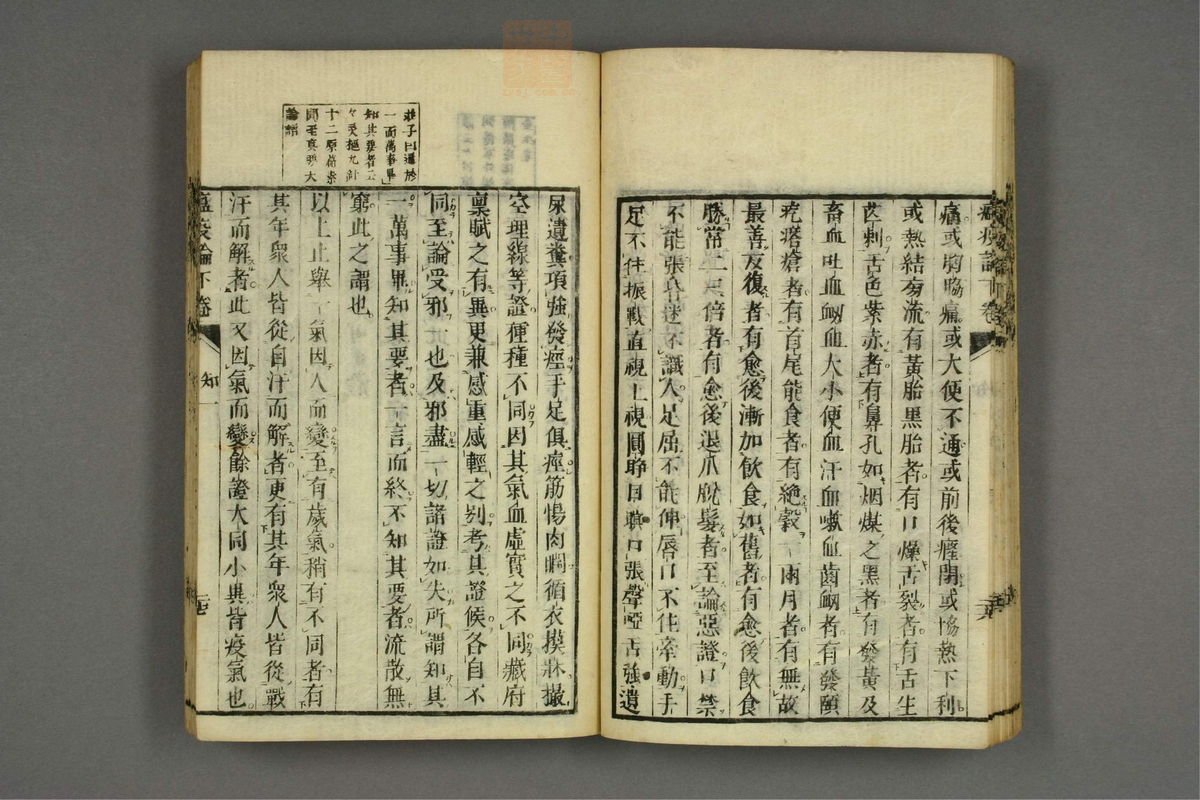 瘟疫論下卷
痛或胸脇痛或大便不通或前後癃閉或協熱下利
或熱結旁流有黃胎黑胎者有口燥舌裂者有舌生
芒刺舌色紫赤者有鼻孔如烟煤之黑者有發黃及
畜血吐血衂血大小便血汗血嗽血齒衂者有發頤
疙瘩瘡者有首尾能食者有絶穀一兩月者有無故
最善反復者有愈後漸加飲食如舊者有愈後飲食
勝常二三倍者有愈後退爪脫髮者至論惡證口禁
不能張昏迷不識人足屈不能伸唇口不住牽動手
足不住振戰直視上視圓睁目瞋口張聲啞舌強遺
尿遺糞項強發痙手足俱痙筋惕肉瞤循衣摸牀撮
空理線等證種種不同因其氣血虛實之不同臟府
禀賦之有異更兼感重感輕之別考其證候各自不
同至論受邪一也及邪盡一切諸證如失所謂知其
一萬事畢知其要者一言而終不知其要者流散無
窮此之謂也
以上止舉一氣因人而變至有歲氣稍有不同者有
其年衆人皆從自汗而解者更有其年衆人皆從戰
汗而解者此又因氣而變餘證大同小異皆疫氣也
莊子曰通於
一而萬事畢
知其要者云
々靈樞九針
十二原篇素
問至真要大
論語
瘟疫論下卷
知一